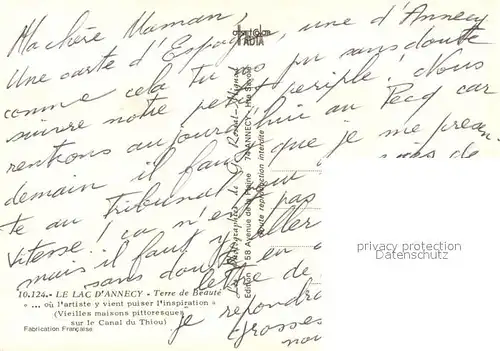 Ma chère Maman,
Une carte d'Espagne, une d'Annecy
comme cela tu as pu sans doute
suivre notre petit périple ! Nous
rentrons aujourd'hui au Pecq car
demain il faut que je me présen-
te au Tribunal pour
Vitesse ! ça n'est pas
mais il faut y aller
sans doute en
lettre de
je répondrai
Grosses
nou
10.124.- LE LAC D'ANNECY - Terre de Beauté
« ... où l'artiste y vient puiser l'inspiration »
(Vieilles maisons pittoresques
sur le Canal du Thiou)
Fabrication Française
Edition
58 Avenue de la Plaine 74 ANNECY - Hte Savoie
toute reproduction interdite
privacy protection
Datenschutz